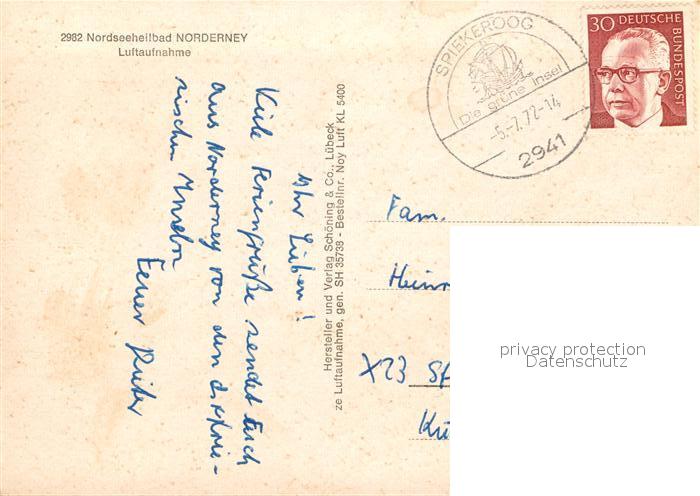 2982 Nordseeheilbad NORDERNEY
Luftaufnahme
SPIEKEROOG
Die grüne Insel
-5.-7.72-14
2941
30 DEUTSCHE
BUNDESPOST
Ihr Lieben!
Viele Feriengrüße sendet Euch
aus Norderney von den ostfrie-
sischen Inseln
Euer Dieter
Hersteller und Verlag Schöning & Co., Lübeck
ze Luftaufnahme, gen. SH 35738 - Bestellnr. Noy Luft KL 5400
Fam.
Heinr
X23
privacy protection
Datenschutz